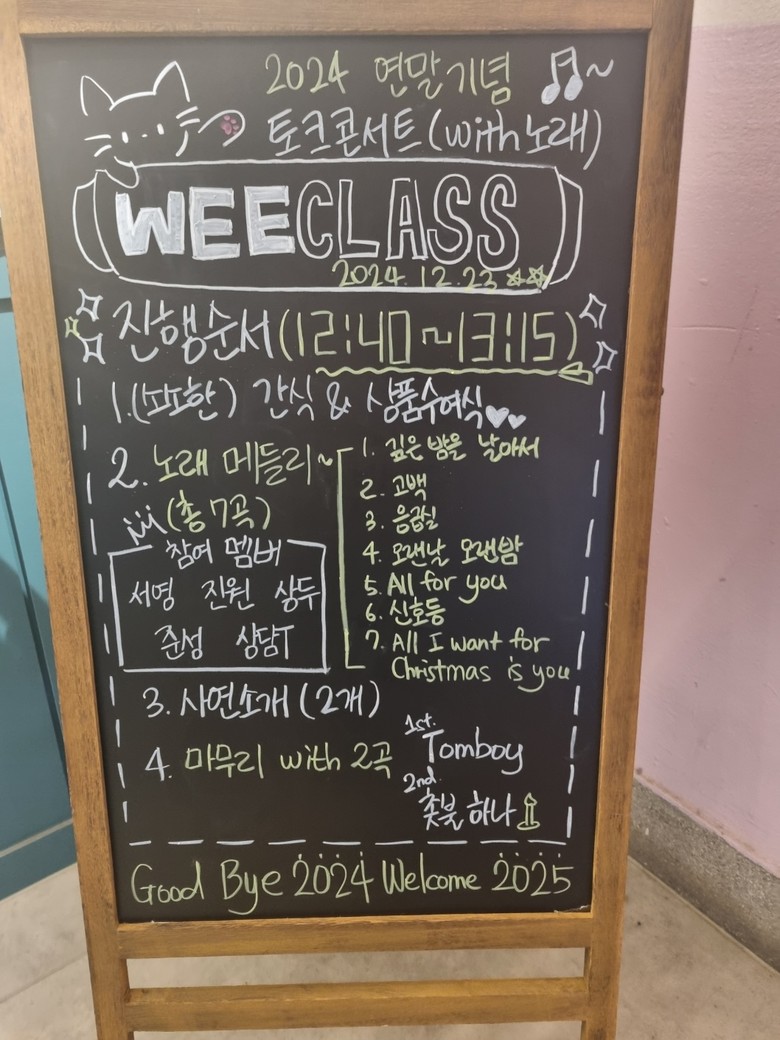 2024 연말기념
토크콘서트(with노래)
WEECLASS
2024.12.23
진행순서(12:40~13:15)
1.(푸짐한) 간식 & 상품수여식
2. 노래 메들리~
(총 7곡)
참여 멤버
서영 진원 상두
준성 상담T
1. 깊은 밤을 날아서
2. 고백
3. 응급실
4. 오랜날 오랜밤
5. All for you
6. 신호등
7. All I want for
Christmas is you
3. 사연소개 (2개)
4. 마무리 with 2곡
1st.
Tomboy
2nd.
촛불 하나
Good Bye 2024 Welcome 2025